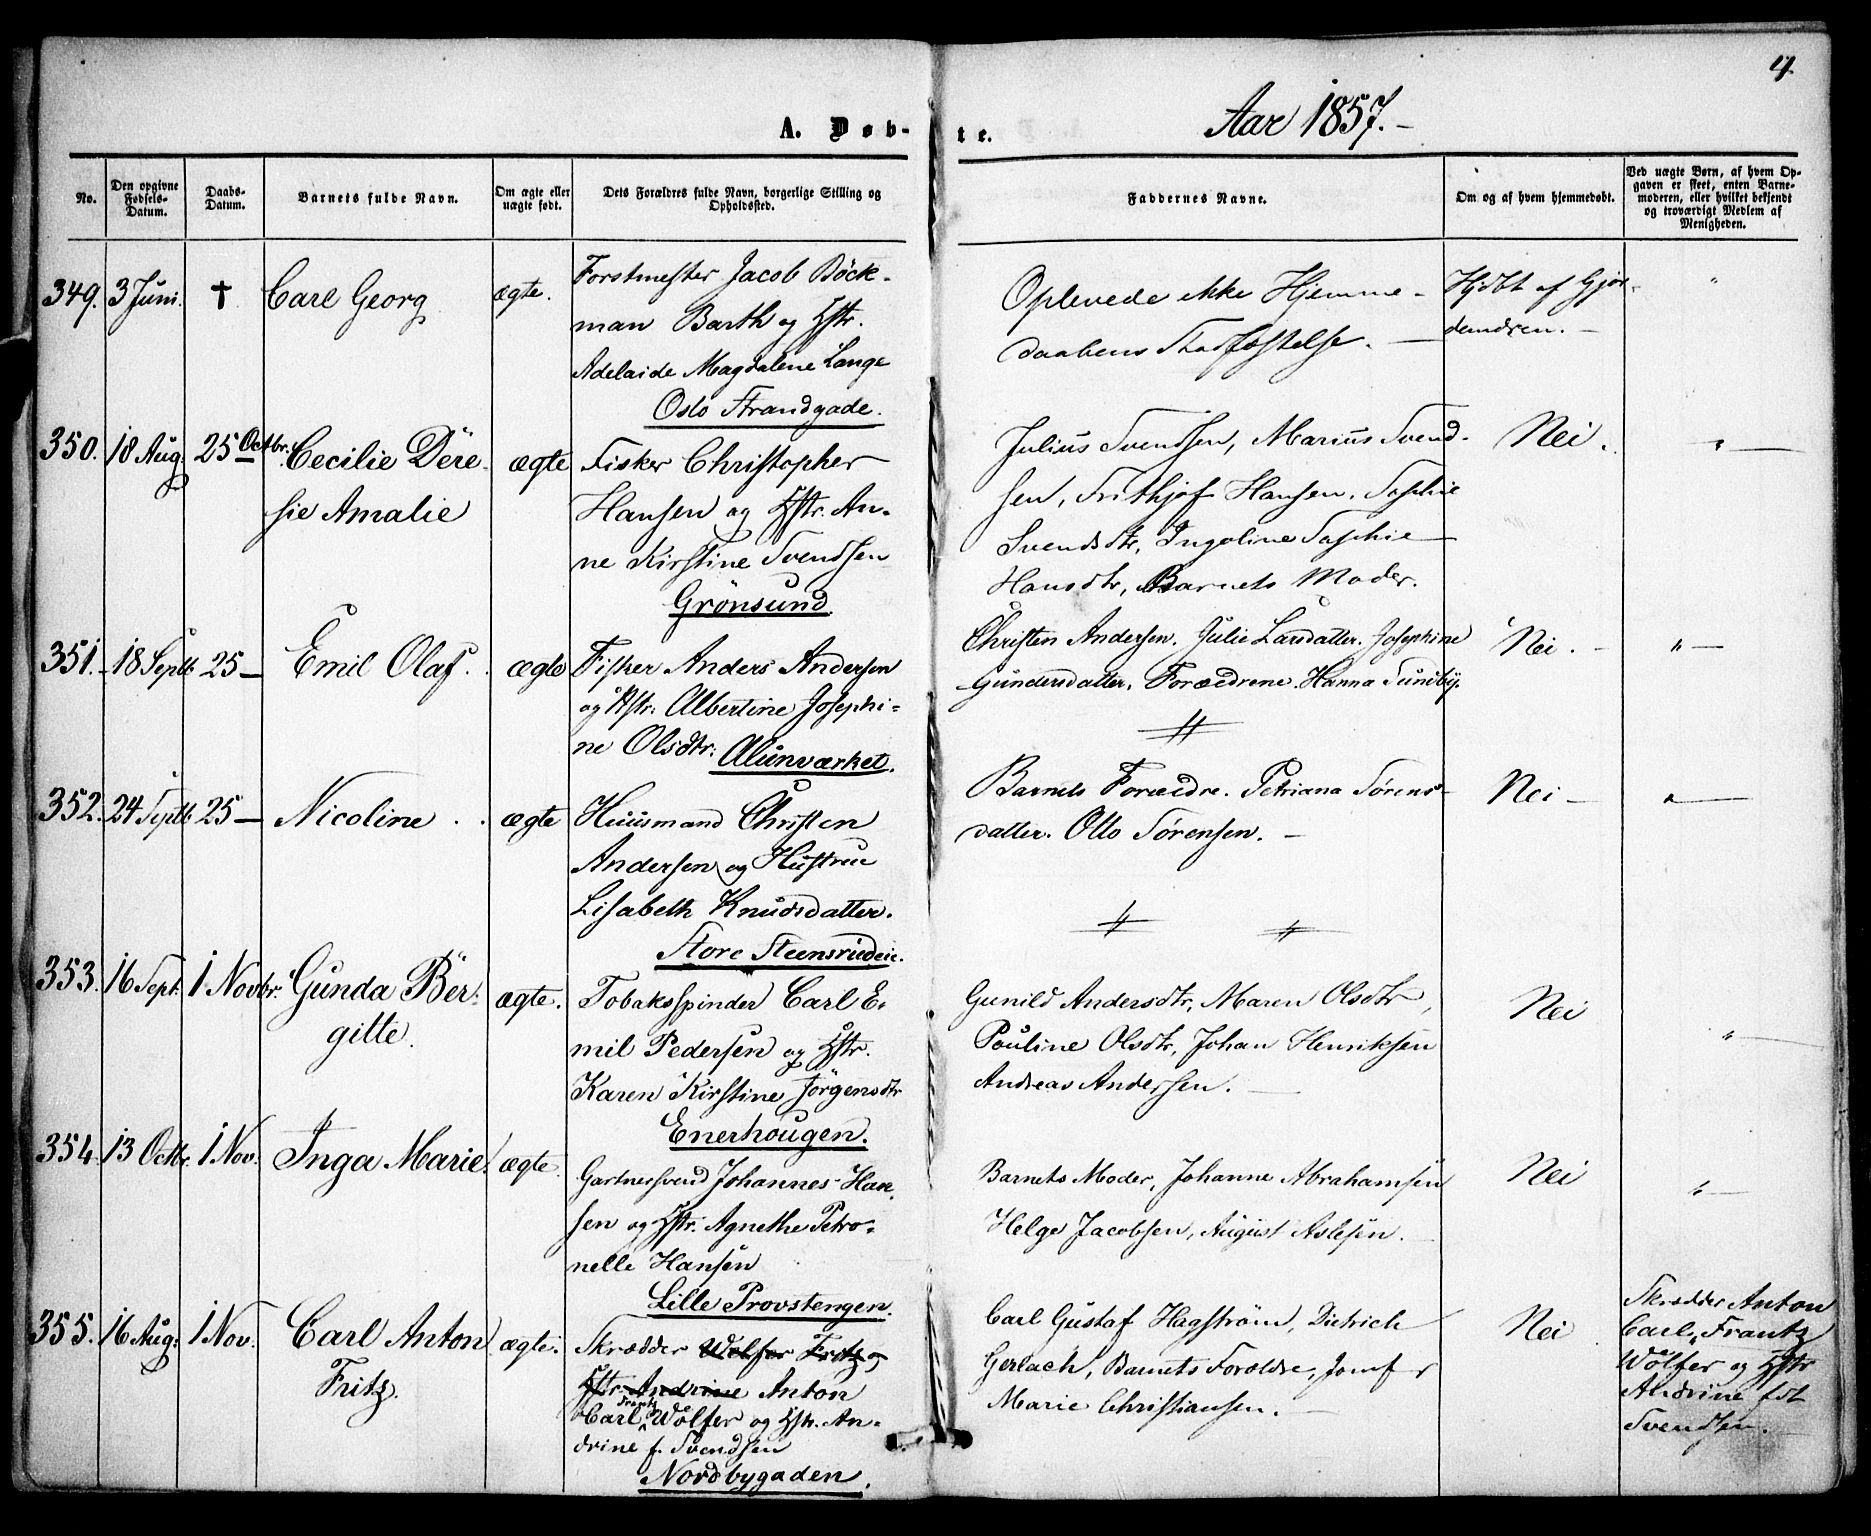 4
Aar 1857.-
A. Døb-
te.
No.
Den opgivne Fødsels-Datum.
Daabs-Datum.
Barnets fulde Navn.
Om ægte eller uægte født.
Dets Forældres fulde Navn, borgerlige Stilling og Opholdssted.
Faddernes Navne.
Om og af hvem hjemmedøbt.
Ved uægte Børn, af hvem Op-
gaven er skeet, enten Barne-
moderen, eller hvilket bekjendt
og troværdigt Medlem af
Menigheden.
349. 3 Juni. † Carl Georg ægte.
Forstmester Jacob Böck-
man Barth og Hstr.
Adelaide Magdalene Lange
Oslo Strandgade.
Oplevede ikke Hjemme-
daabens Stadfæstelse. —
Hjdbt af Gjor-
demdren. —
"
350. 18 Aug. 25 Octbr. Cecilie Dere-
sie Amalie
ægte
Fisker Christopher
Hansen og Hstr. An-
ne Kirstine Svendsen
Grönsund.
Julius Svendsen, Marius Svend-
sen, Frithjof Hansen, Sophie
Svendsdtr, Ingoline Sophie
Hansdtr, Barnets Moder.
Nei.
" —
351. 18 Septb 25 — Emil Olaf. ægte
Fisker Anders Andersen
og Hstr: Albertine Josephi-
ne Olsdtr: Alunværket.
Christen Andersen. Julie Larsdatter. Josephine
Gundersdatter. Forældrene. Hanna Sundby.
Nei. -
" —
352. 24 Septb 25 — Nicoline . . ægte
Huusmand Christen
Andersen og Hustrue
Lisabeth Knudsdatter.
Store Steensrudeie.
Barnets Forældre. Petriana Sørens-
datter. Otto Sørensen. —
Nei -
" —
353. 16 Sept. 1 Novbr. Gunda Ber-
gitte.
ægte.
Tobaksspinder Carl E-
mil Pedersen og Hstr.
Karen Kirstine Jörgensdtr
Enerhougen.
Gunild Andersdtr, Maren Olsdtr,
Pouline Olsdtr, Johan Henriksen
Andreas Andersen. —
Nei
" —
354. 13 Octbr. 1 Nov. Inga Marie. ægte.
Gartnersvend Johannes Han-
sen og Hstr. Agnethe Petro-
nelle Hansen
Lille Provstengen.
Barnets Moder, Johanne Abrahamsen
Helge Jacobsen, August Aslesen.
Nei
" —
355. 16 Aug: 1 Nov. Carl Anton
Fritz.
ægte.
Skrædder Wolfer Fritz og
Hstr. Andrine Anton
Carl Frantz Wölfer og Hstr. An-
drine f. Svendsen
Nordbygaden.
Carl Gustaf Hagström, Dietrich
Gerlach, Barnets Foroldre, Jomfr
Marie Christiansen. —
Nei
Skrædder Anton
Carl Frantz
Wölfer og Hstr
Andrine fdt
Svendsen.